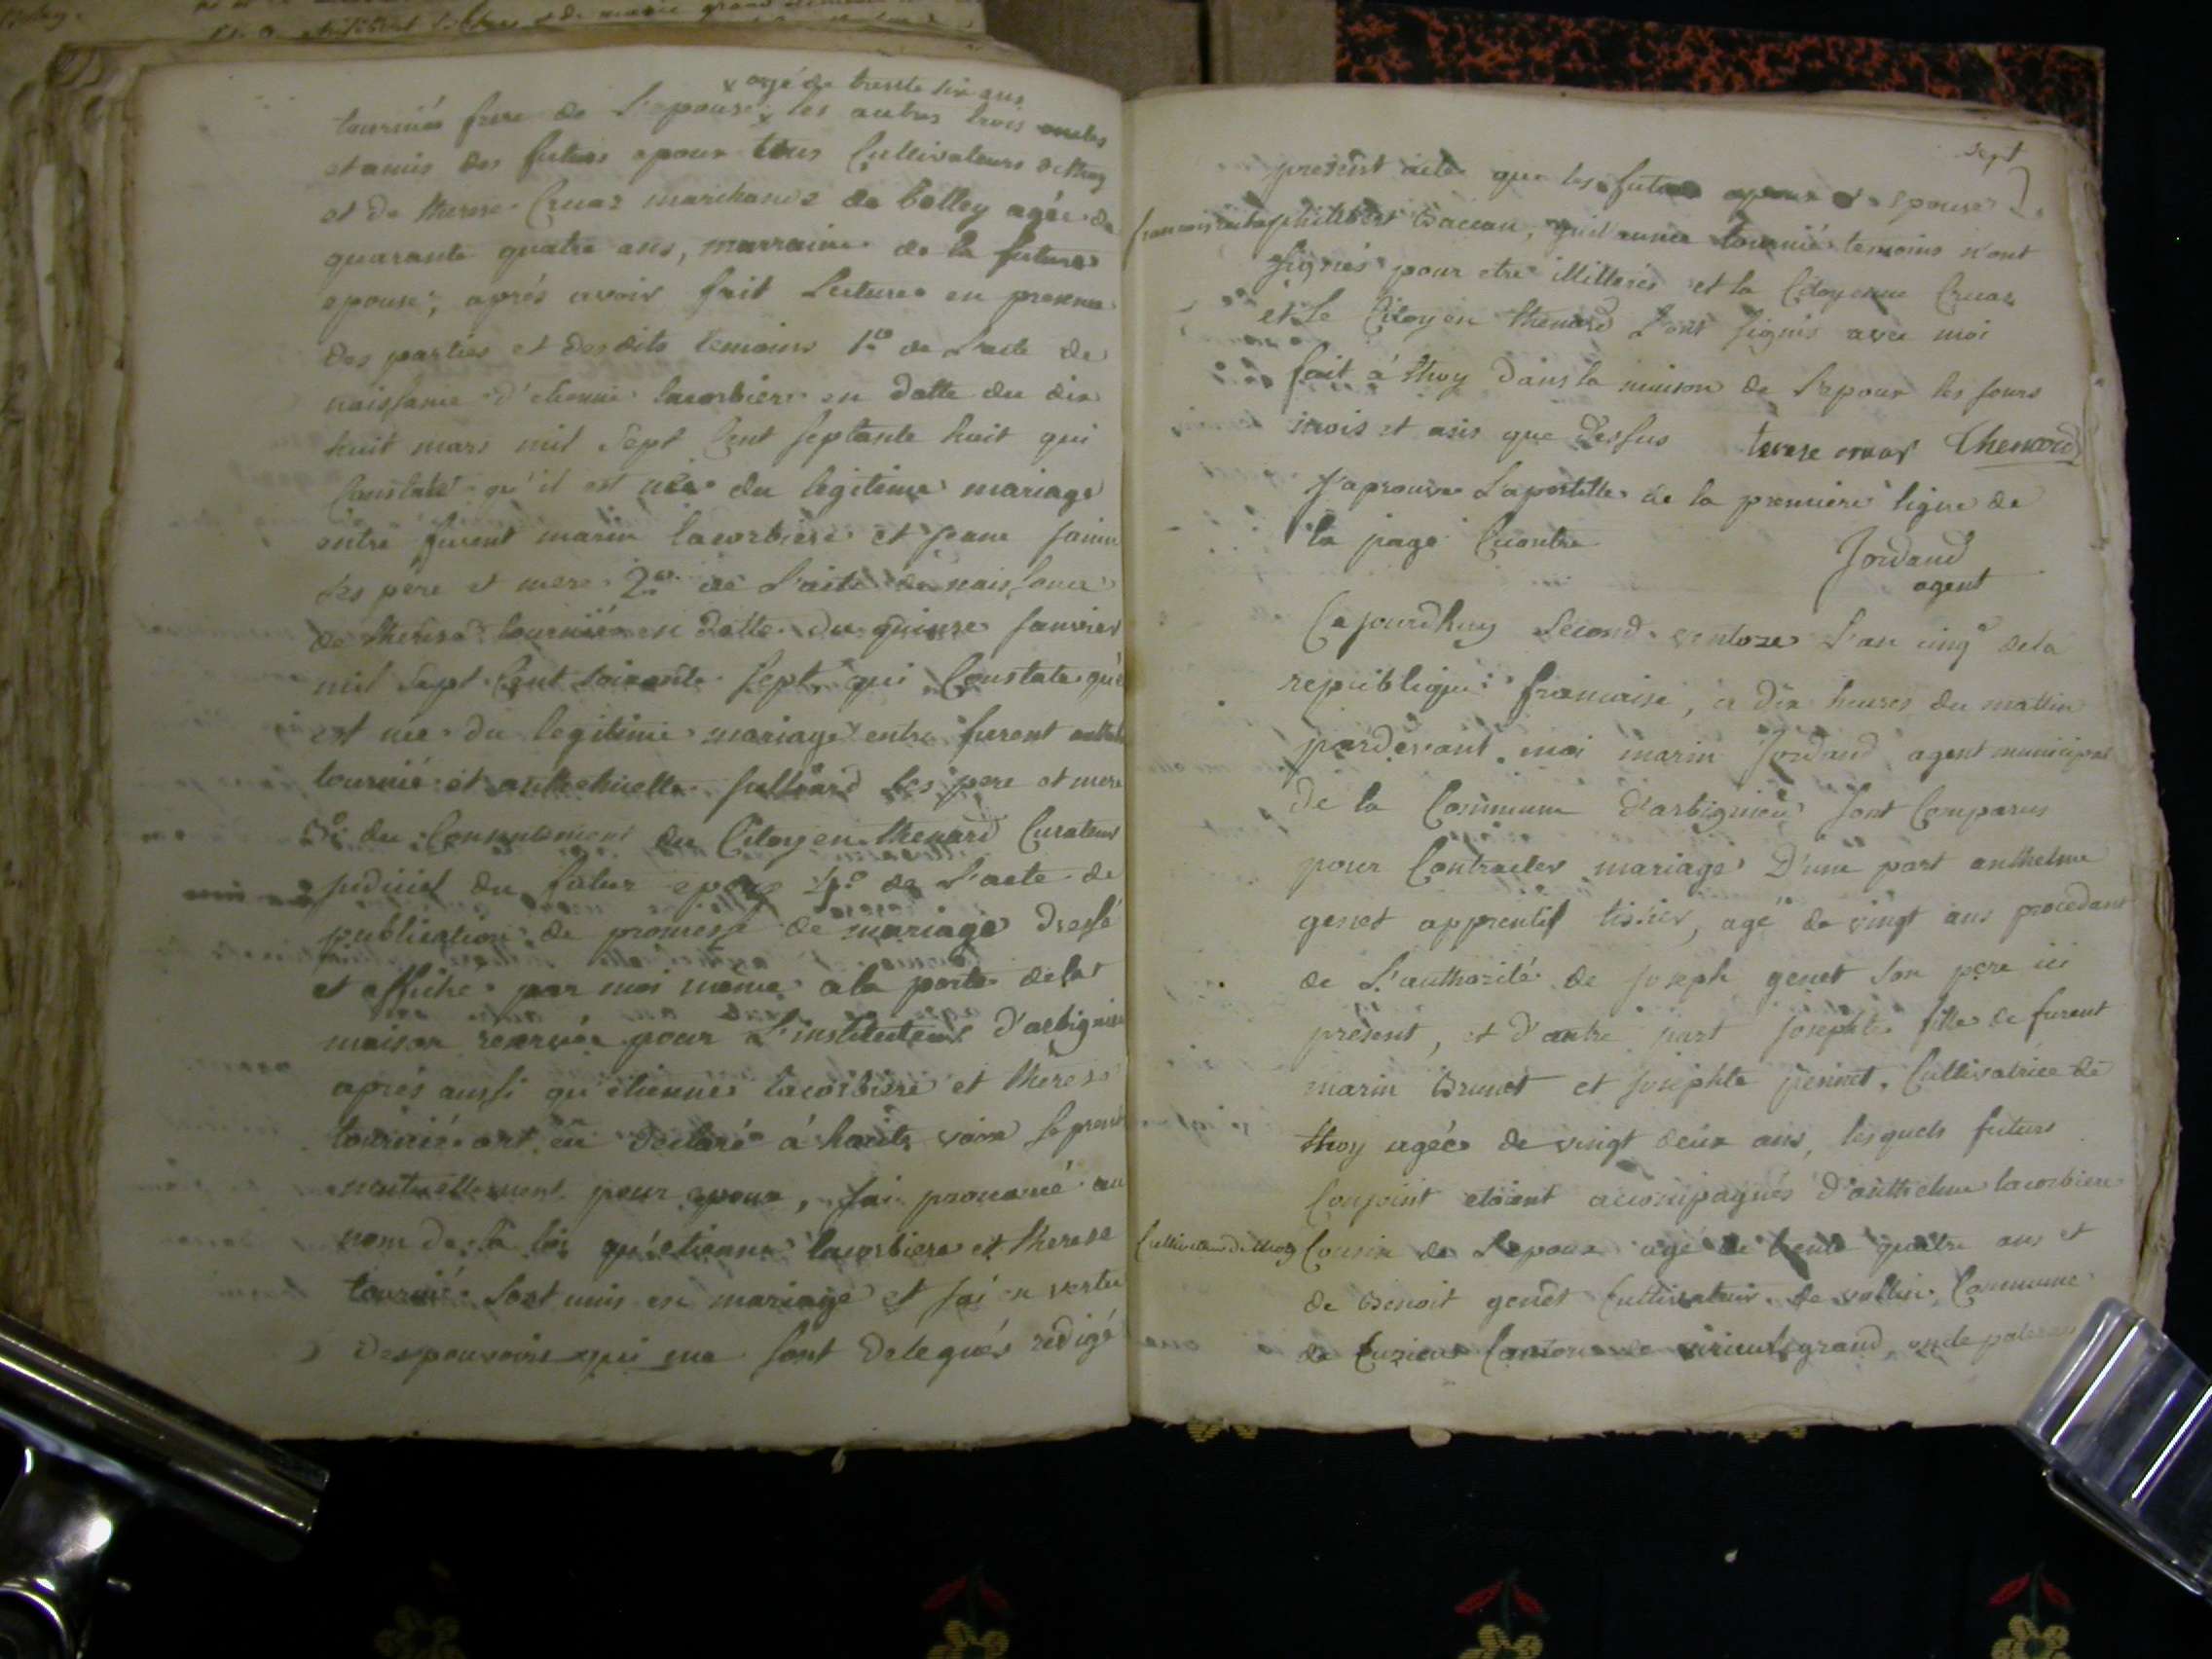 x agé de trente six ans
tournié frere de l'epouse x les autres trois oncles
et amis des futurs epoux tous Cultivateurs de thoy
et de therese Cruaz marchande de belley agée de
quarante quatre ans, marraine de la future
epouse, aprés avoir fait Lecture en presence
des parties et desdits temoins 1º de L'acte de
naissance d'etienne lacorbiere en datte du dix
huit mars mil Sept Cent Septante huit qui
Constate qu'il est née du legitime mariage
entre furent marin lacorbiere et jeanne janin
Ses père et mere 2º de L'acte de naissance
de therese tournié en datte du quinze janvier
mil Sept Cent Soixante Sept qui Constate qu'e
est née du legitime mariage entre furent
tournié et anthelmette julliard Ses pere et mere
3º du Consentement du Citoyen thenard Curateur
judiciel du futur epoux 4º de L'acte de
publication de promesse de mariage dressé
et affiché par moi meme a la porte de la
maison reservée pour L'instituteur d'arbignieu
aprés aussi qu'etienne lacorbiere et therese
tournié ont eu declaré à haute voix Se prendre
mutuellement pour epoux, j'ai prononcé au
nom de la loi qu'etienne lacorbiere et therese
tournié Sont unis en mariage et j'ai en vertu
des pouvoirs qui me Sont delegués redigé
Sept
present acte que les futurs epoux et epouse
philibert Baccon, guillaume tournié temoins n'ont
Signés pour etre illiterés et la Citoyenne Cruaz
et le Citoyen thenard L'ont Signés avec moi
fait à thoy dans la maison de L'epoux les jours
mois et ans que dessus terese cruas Thenard
J'aprouve L'apostille de la premiere ligne de
la page Cicontre
Jordand
agent
Cejourdhuy Second ventoze L'an cinqº de la
republique francaise, a dix heures du mattin
pardevant moi marin Jordand agent municipal
de la Commune d'arbignieu Sont Comparus
pour Contracter mariage D'une part anthelme
genet apprentif tissier, agé de vingt ans procedant
de L'authorité de joseph genet Son pere ici
present, et d'autre part josephte fille de furent
marin Brunet et josephte perinet, Cultivatrice de
thoy agée de vingt deux ans, lesquels futurs
Conjoint etoient accompagnés d'anthelme lacorbiere
Cultivateur de thoy Cousin de L'epoux agé de trente quatre ans et
de Benoit genet Cultivateur de vollin Commune
de Cuzieu Canton de virieu le grand, oncle paternel